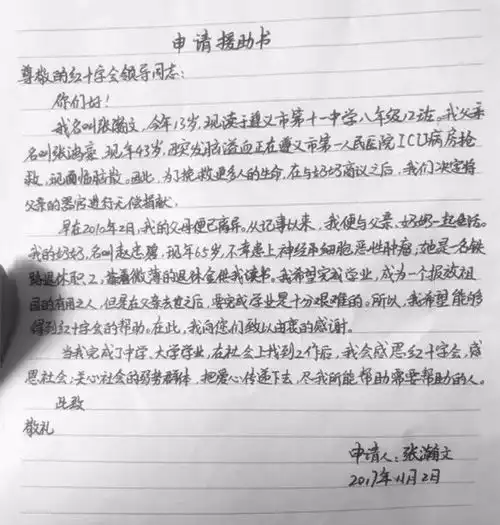 申请援助书
尊敬的红十字会领导同志：
你们好！
我名叫张瀚文，今年13岁，现读于遵义市第十一中学八年级12班。我父亲
名叫张鸿豪，现年43岁，因突发脑溢血正在遵义市第一人民医院ICU病房抢
救，现面临脑散。因此，为了挽救更多人的生命，在与奶奶商议之后，我们决定将
父亲的器官进行无偿捐献。
早在2010年2月，我的父母便已离异。从记事以来，我便与父亲、奶奶一起生活。
我的奶奶，名叫赵忠碧，现年65岁，不幸患上神经吊细胞恶性肿瘤；她是一名铁
路退休职工，靠着微薄的退休金供我读书。我希望完成学业，成为一个报效祖
国的有用之人，但是在父亲去世之后，要完成学业是十分艰难的。所以，我希望能够
得到红十字会的帮助。在此，我向您们致以由衷的感谢。
当我完成了中学、大学学业，在社会上找到工作后，我会感恩红十字会，感
恩社会；关心社会的弱势群体，把爱心传递下去，尽我所能帮助需要帮助的人。
此致
敬礼
申请人：张瀚文
2017年11月2日